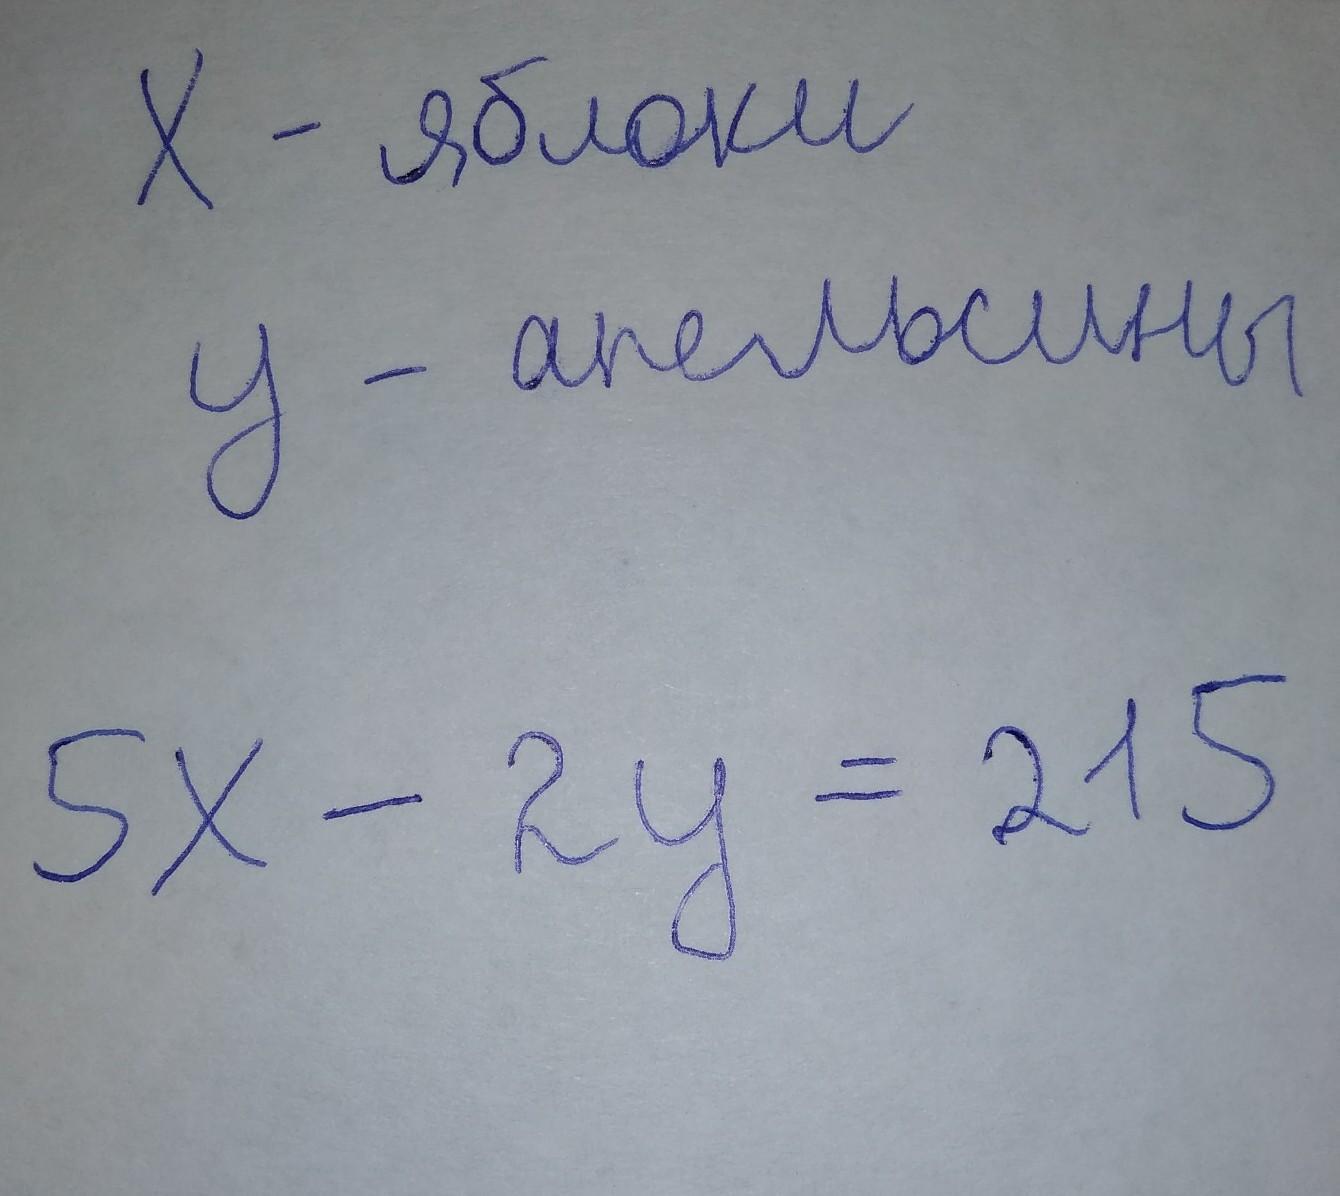 x - яблоки
y - апельсины
5x - 2y = 215